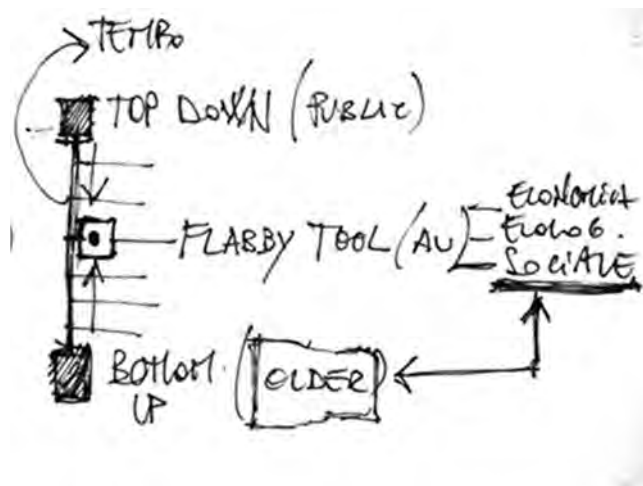 TEMPO
TOP DOWN (PUBLIC)
FLABBY TOOL (AU)
ECONOMICA
ECOLOG.
SOCIALE
BOTTOM UP
(OLDER)